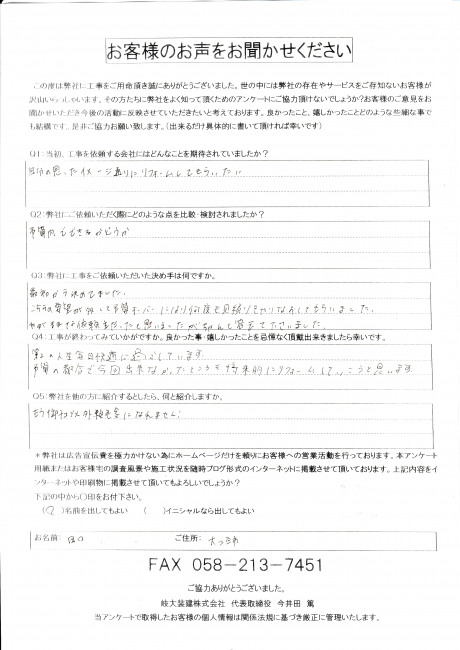 お客様のお声をお聞かせください
この度は弊社に工事をご用命頂き誠にありがとうございました。世の中には弊社の存在やサービスをご存知ないお客様が
沢山いらっしゃいます。その方たちに弊社をよく知って頂くためのアンケートにご協力頂けないでしょうか?お客様のご意見をお
聞かせいただき今後の活動に反映させていただきたいと考えております。良かったこと、嬉しかったことどのような些細な事で
も結構です。是非ご協力お願い致します。(出来るだけ具体的に書いて頂ければ幸いです)
Q1:当初、工事を依頼する会社にはどんなことを期待されていましたか?
自分の思ったイメージ通りにリフォームしてもらいたい
Q2:弊社にご依頼いただく際にどのような点を比較・検討されましたか?
予算内でできるかどうか
Q3:弊社に工事をご依頼いただいた決め手は何ですか。
最初から決めてました。
こちらの要望が多くて予算オーバーになり何度も見積りをやりなおしてもらいました。
わがままな依頼主だったと思いましたがちゃんと答えて下さいました。
Q4:工事が終わってみていかがですか。良かった事・嬉しかったことを忌憚なく頂戴出来ましたら幸いです。
第2の人生毎日快適に過ごしています。
予算の都合で今回出来なかったところも将来的にリフォームしていこうと思います
Q5:弊社を他の方に紹介するとしたら、何と紹介しますか。
もう御社以外頼む気になれません!
*弊社は広告宣伝費を極力かけない為にホームページだけを頼りにお客様への営業活動を行っております。本アンケート
用紙またはお客様宅の調査風景や施工状況を随時ブログ形式のインターネットに掲載させて頂いております。上記内容をイ
ンターネットや印刷物に掲載させて頂いてもよろしいでしょうか?
下記の中から〇印をお付下さい。
(〇)名前を出してもよい ( )イニシャルなら出してもよい
お名前: ご住所:
FAX 058-213-7451
ご協力ありがとうございました。
岐大装建株式会社 代表取締役 今井田 篤
当アンケートで取得したお客様の個人情報は関係法規に基づき厳正に管理いたします。